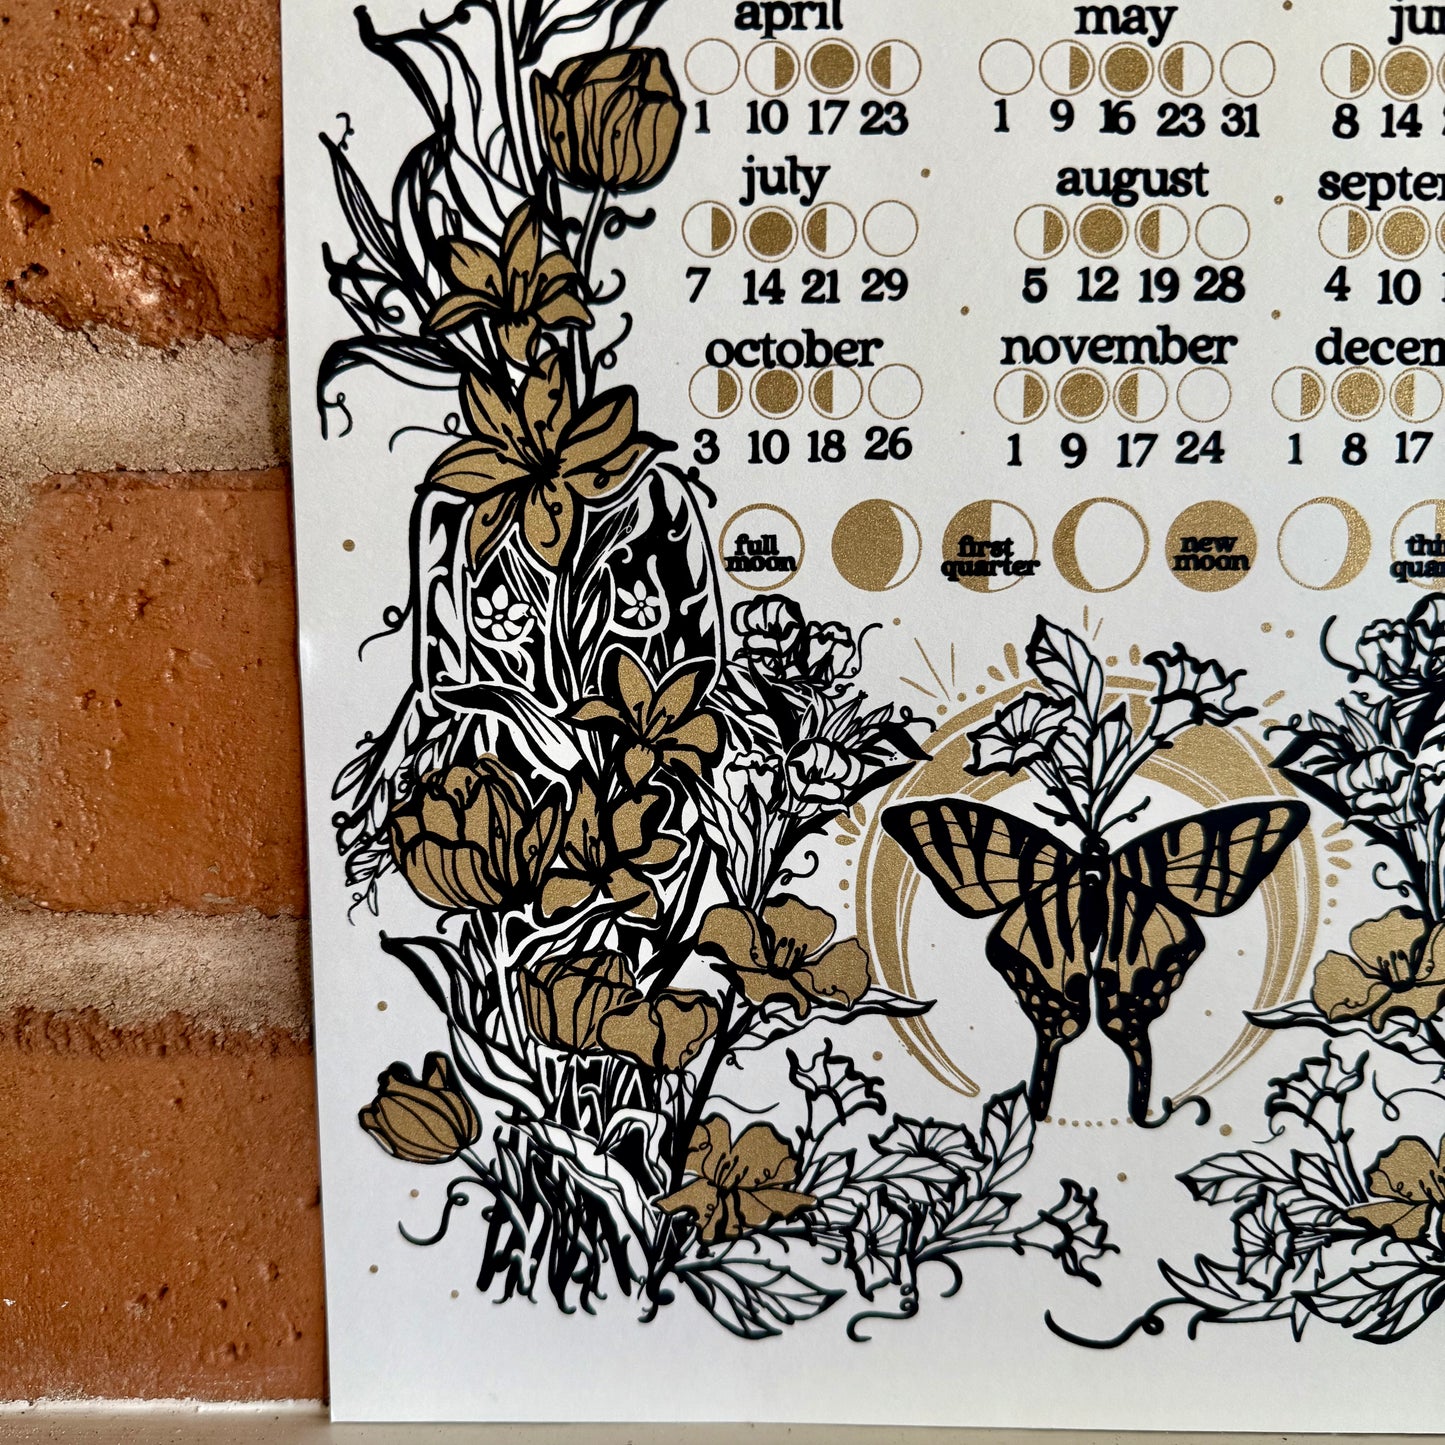 april may
1 10 17 23 1 9 16 23 31 8 14
july august
7 14 21 29 5 12 19 28 4 10
october november
3 10 18 26 1 9 17 24 1 8 17
full moon first quarter new moon